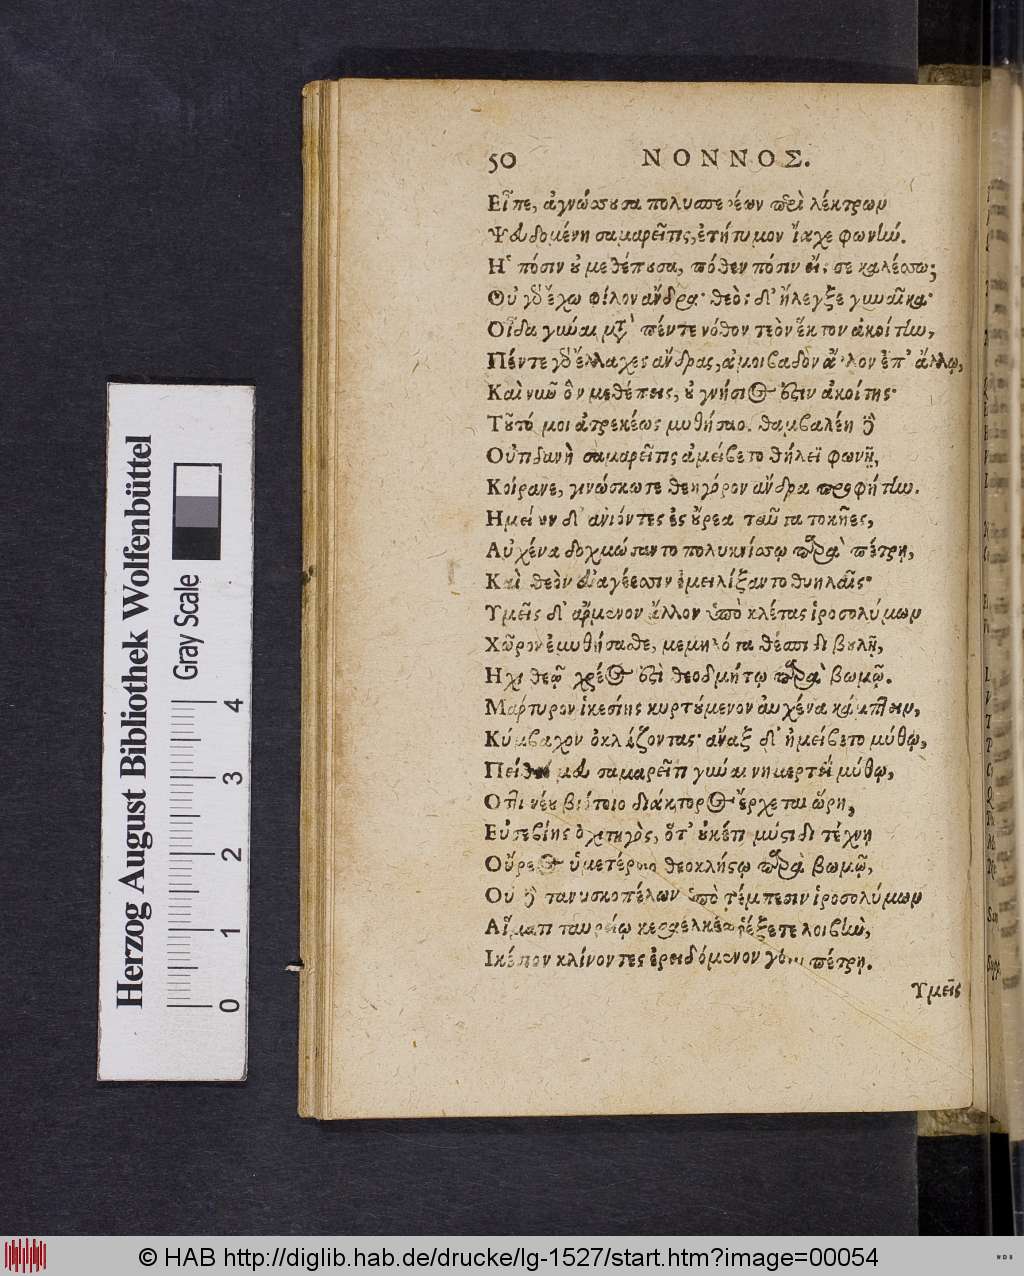 50 ΝΟΝΝΟΣ.
Εἶπε, ἀγνώσσουσα πολυσπερέων περὶ λέκτρων
Ψευδομένη σαμαρεῖτις, ἐτήτυμον ἴαχε φωνήν.
Ἡ πόσιν οὐ μεθέπουσα, πόθεν πόσιν εἰς σε καλέσσω;
Οὐ γὰρ ἔχω φίλον ἄνδρα· θεὸς δ' ἤλεγξε γυναῖκα·
Οἶδα γύναι μετὰ πέντε νόθον τεὸν ἕκτον ἀκοίτην,
Πέντε γὰρ ἔλλαχες ἄνδρας, ἀμοιβαδὸν ἄλλον ἐπ' ἄλλῳ,
Καὶ νῦν ὃν μεθέπεις, οὐ γνήσιός ἐστιν ἀκοίτης·
Τοῦτό μοι ἀτρεκέως μυθήσαο. θαμβαλέη δὲ
Οὐτιδανὴ σαμαρεῖτις ἀμείβετο θήλεϊ φωνῇ,
Κοίρανε, γινώσκω τε θεηγόρον ἄνδρα προφήτην.
Ἡμείων δ' ἀνιόντες ἐς οὔρεα ταῦτα τοκῆες,
Αὐχένα δοχμώσαντο πολυκνίσσῳ παρὰ πέτρῃ,
Καὶ θεὸν εὐαγέεσσιν ἐμειλίξαντο θυηλαῖς·
Ὑμεῖς δ' ἄρμενον ἄλλον ὑπὸ κλέτας ἱροσολύμων
Χῶρον ἐμυθήσαθε, μεμηλότα θέσπιδι βουλῇ,
Ἧχι θεῷ χρέος ἐστὶ θεοδμήτῳ παρὰ βωμῷ.
Μάρτυρον ἱκεσίης κυρτούμενον αὐχένα κάμπτειν,
Κύμβαχον ὀκλάζοντας· ἄναξ δ' ἠμείβετο μύθῳ,
Πείθεό μευ σαμαρεῖτι γύναι νημερτέϊ μύθῳ,
Ὅττι νέου βιότοιο διάκτορος ἔρχεται ὥρη,
Εὐσεβίης ὀχετηγὸς, ὅτ' οὐκέτι μύστιδι τέχνῃ
Οὔρεος ὑμετέροιο θεοκλήτῳ παρὰ βωμῷ,
Οὐ δὲ τανυσκοπέλων ὑπὸ τέμπεσιν ἱροσολύμων
Αἵματι ταυρείῳ κερασελκέα ῥέξετε λοιβὴν,
Ἱκέσιον κλίνοντες ἐρειδόμενον γόνυ πέτρῃ.
Ὑμεῖς
Herzog August Bibliothek Wolfenbüttel
Gray Scale
0 1 2 3 4
© HAB http://diglib.hab.de/drucke/lg-1527/start.htm?image=00054